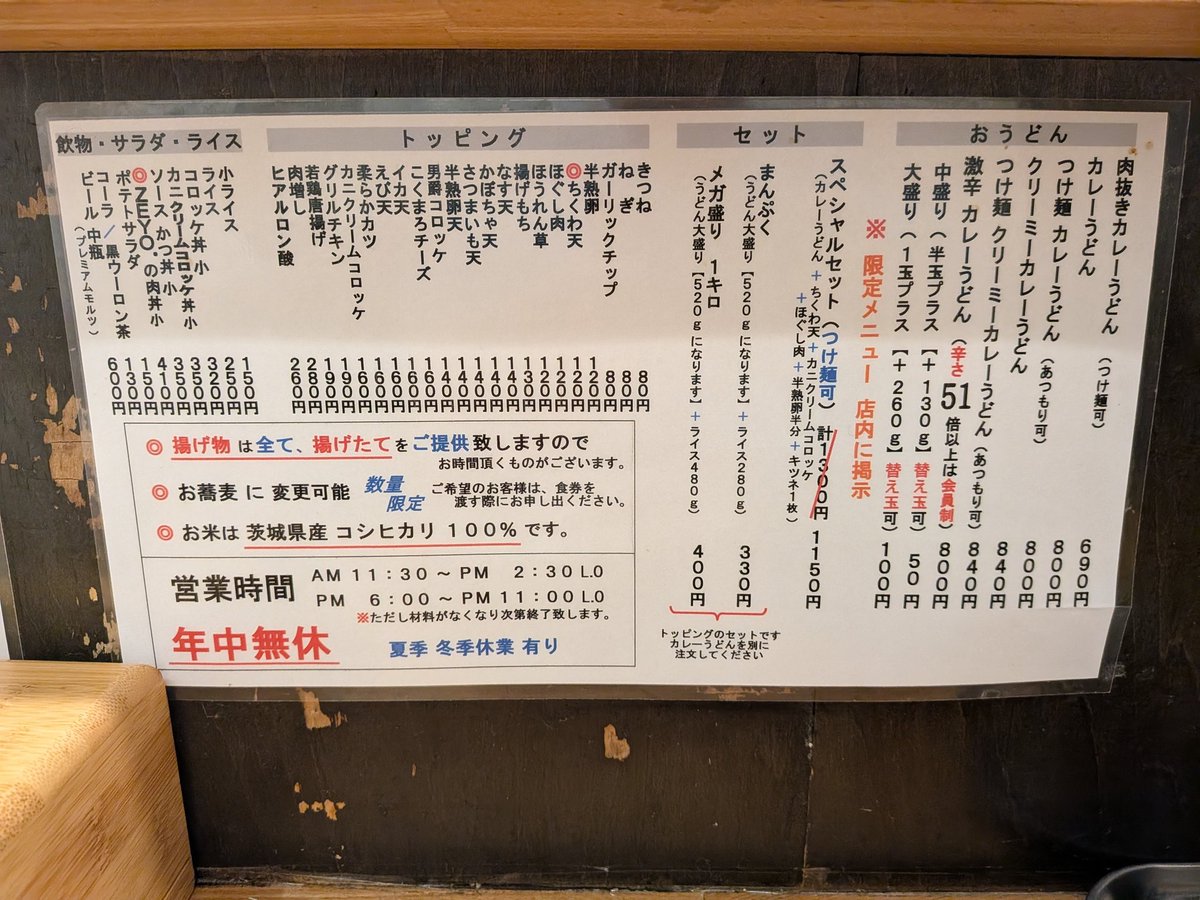 おうどん
肉抜きカレーうどん (つけ麺可) 690円
カレーうどん 800円
つけ麺 カレーうどん (あつもり可) 800円
クリーミーカレーうどん 840円
つけ麺 クリーミーカレーうどん (あつもり可) 840円
激辛 カレーうどん (辛さ51倍以上は会員制) 800円
中盛り (半玉プラス 【+130g】替え玉可) 50円
大盛り (1玉プラス 【+260g】替え玉可) 100円
※ 限定メニュー 店内に掲示
セット
スペシャルセット (つけ麺可) 計1300円 1150円
(カレーうどん+ちくわ天+カニクリームコロッケ
+ほぐし肉+半熟卵半分+キツネ1枚)
まんぷく
(うどん大盛り【520gになります】+ライス280g) 330円
メガ盛り 1キロ
(うどん大盛り【520gになります】+ライス480g) 400円
トッピングのセットです
カレーうどんを別に
注文してください
トッピング
きつね 80円
ねぎ 80円
ガーリックチップ 80円
半熟卵 120円
◎ちくわ天 120円
ほぐし肉 120円
ほうれん草 120円
揚げもち 120円
なす天 110円
かぼちゃ天 110円
さつまいも天 110円
半熟卵天 140円
男爵コロッケ 140円
こくまろチーズ 160円
イカ天 160円
えび天 160円
柔らかカツ 160円
カニクリームコロッケ 160円
グリルチキン 190円
若鶏唐揚げ 190円
肉増し 280円
ヒアルロン酸 260円
飲物・サラダ・ライス
小ライス 150円
ライス 250円
コロッケ丼 小 320円
カニクリームコロッケ丼 小 350円
ソースかつ丼 小 350円
◎ZEYO.の肉丼 小 410円
ポテトサラダ 150円
コーラ/黒ウーロン茶 130円
ビール 中瓶 (プレミアムモルツ) 600円
◎ 揚げ物 は 全て、揚げたてをご提供 致しますので
お時間頂くものがございます。
◎ お蕎麦 に 変更可能 数量限定 ご希望のお客様は、食券を
渡す際にお申し出ください。
◎ お米は 茨城県産 コシヒカリ 100% です。
営業時間 AM 11:30 ~ PM 2:30 L.O
PM 6:00 ~ PM 11:00 L.O
※ただし材料がなくなり次第終了致します。
年中無休 夏季 冬季休業 有り